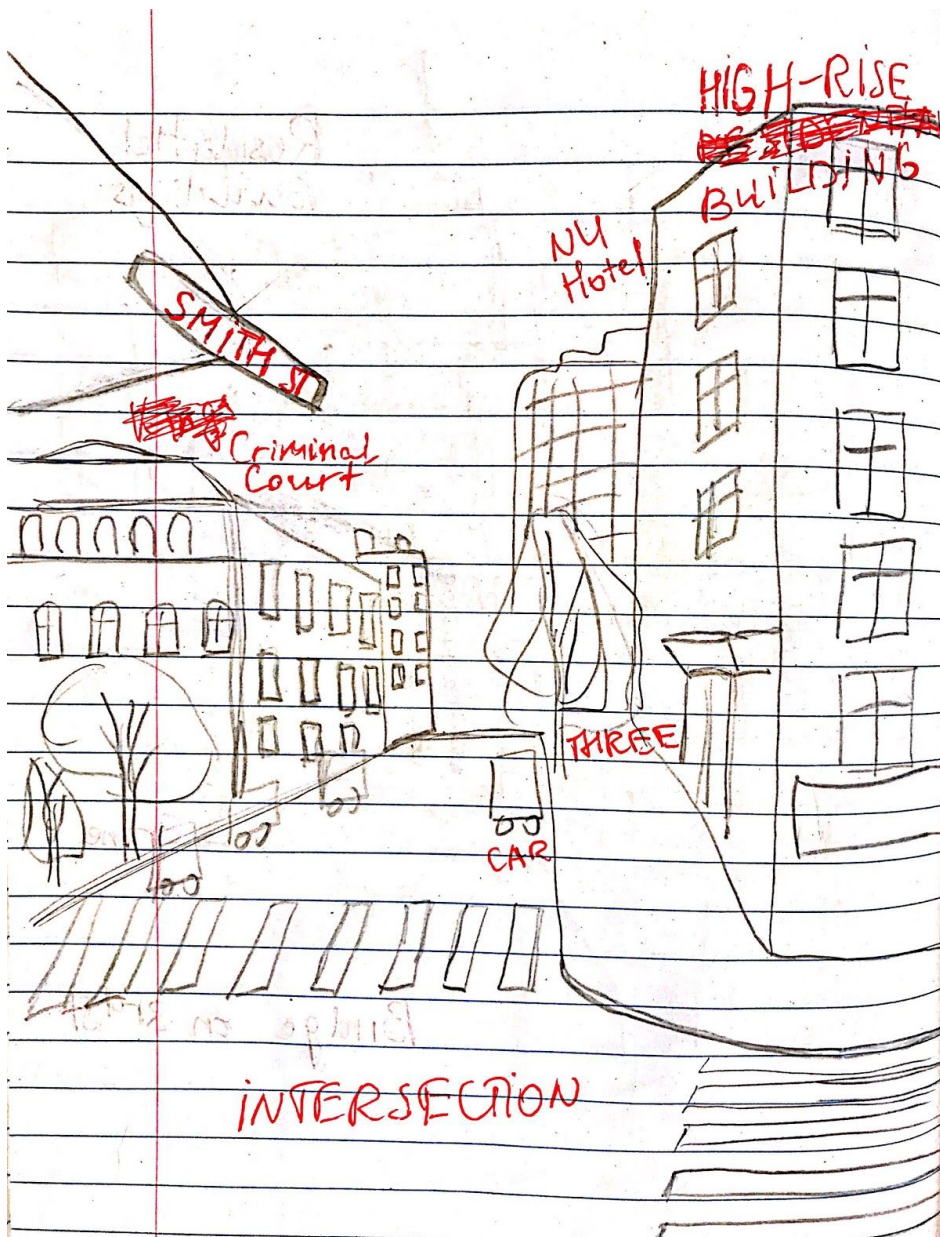 HIGH-RISE
BUILDING
NU
Hotel
SMITH ST
Criminal
Court
THREE
CAR
INTERSECTION